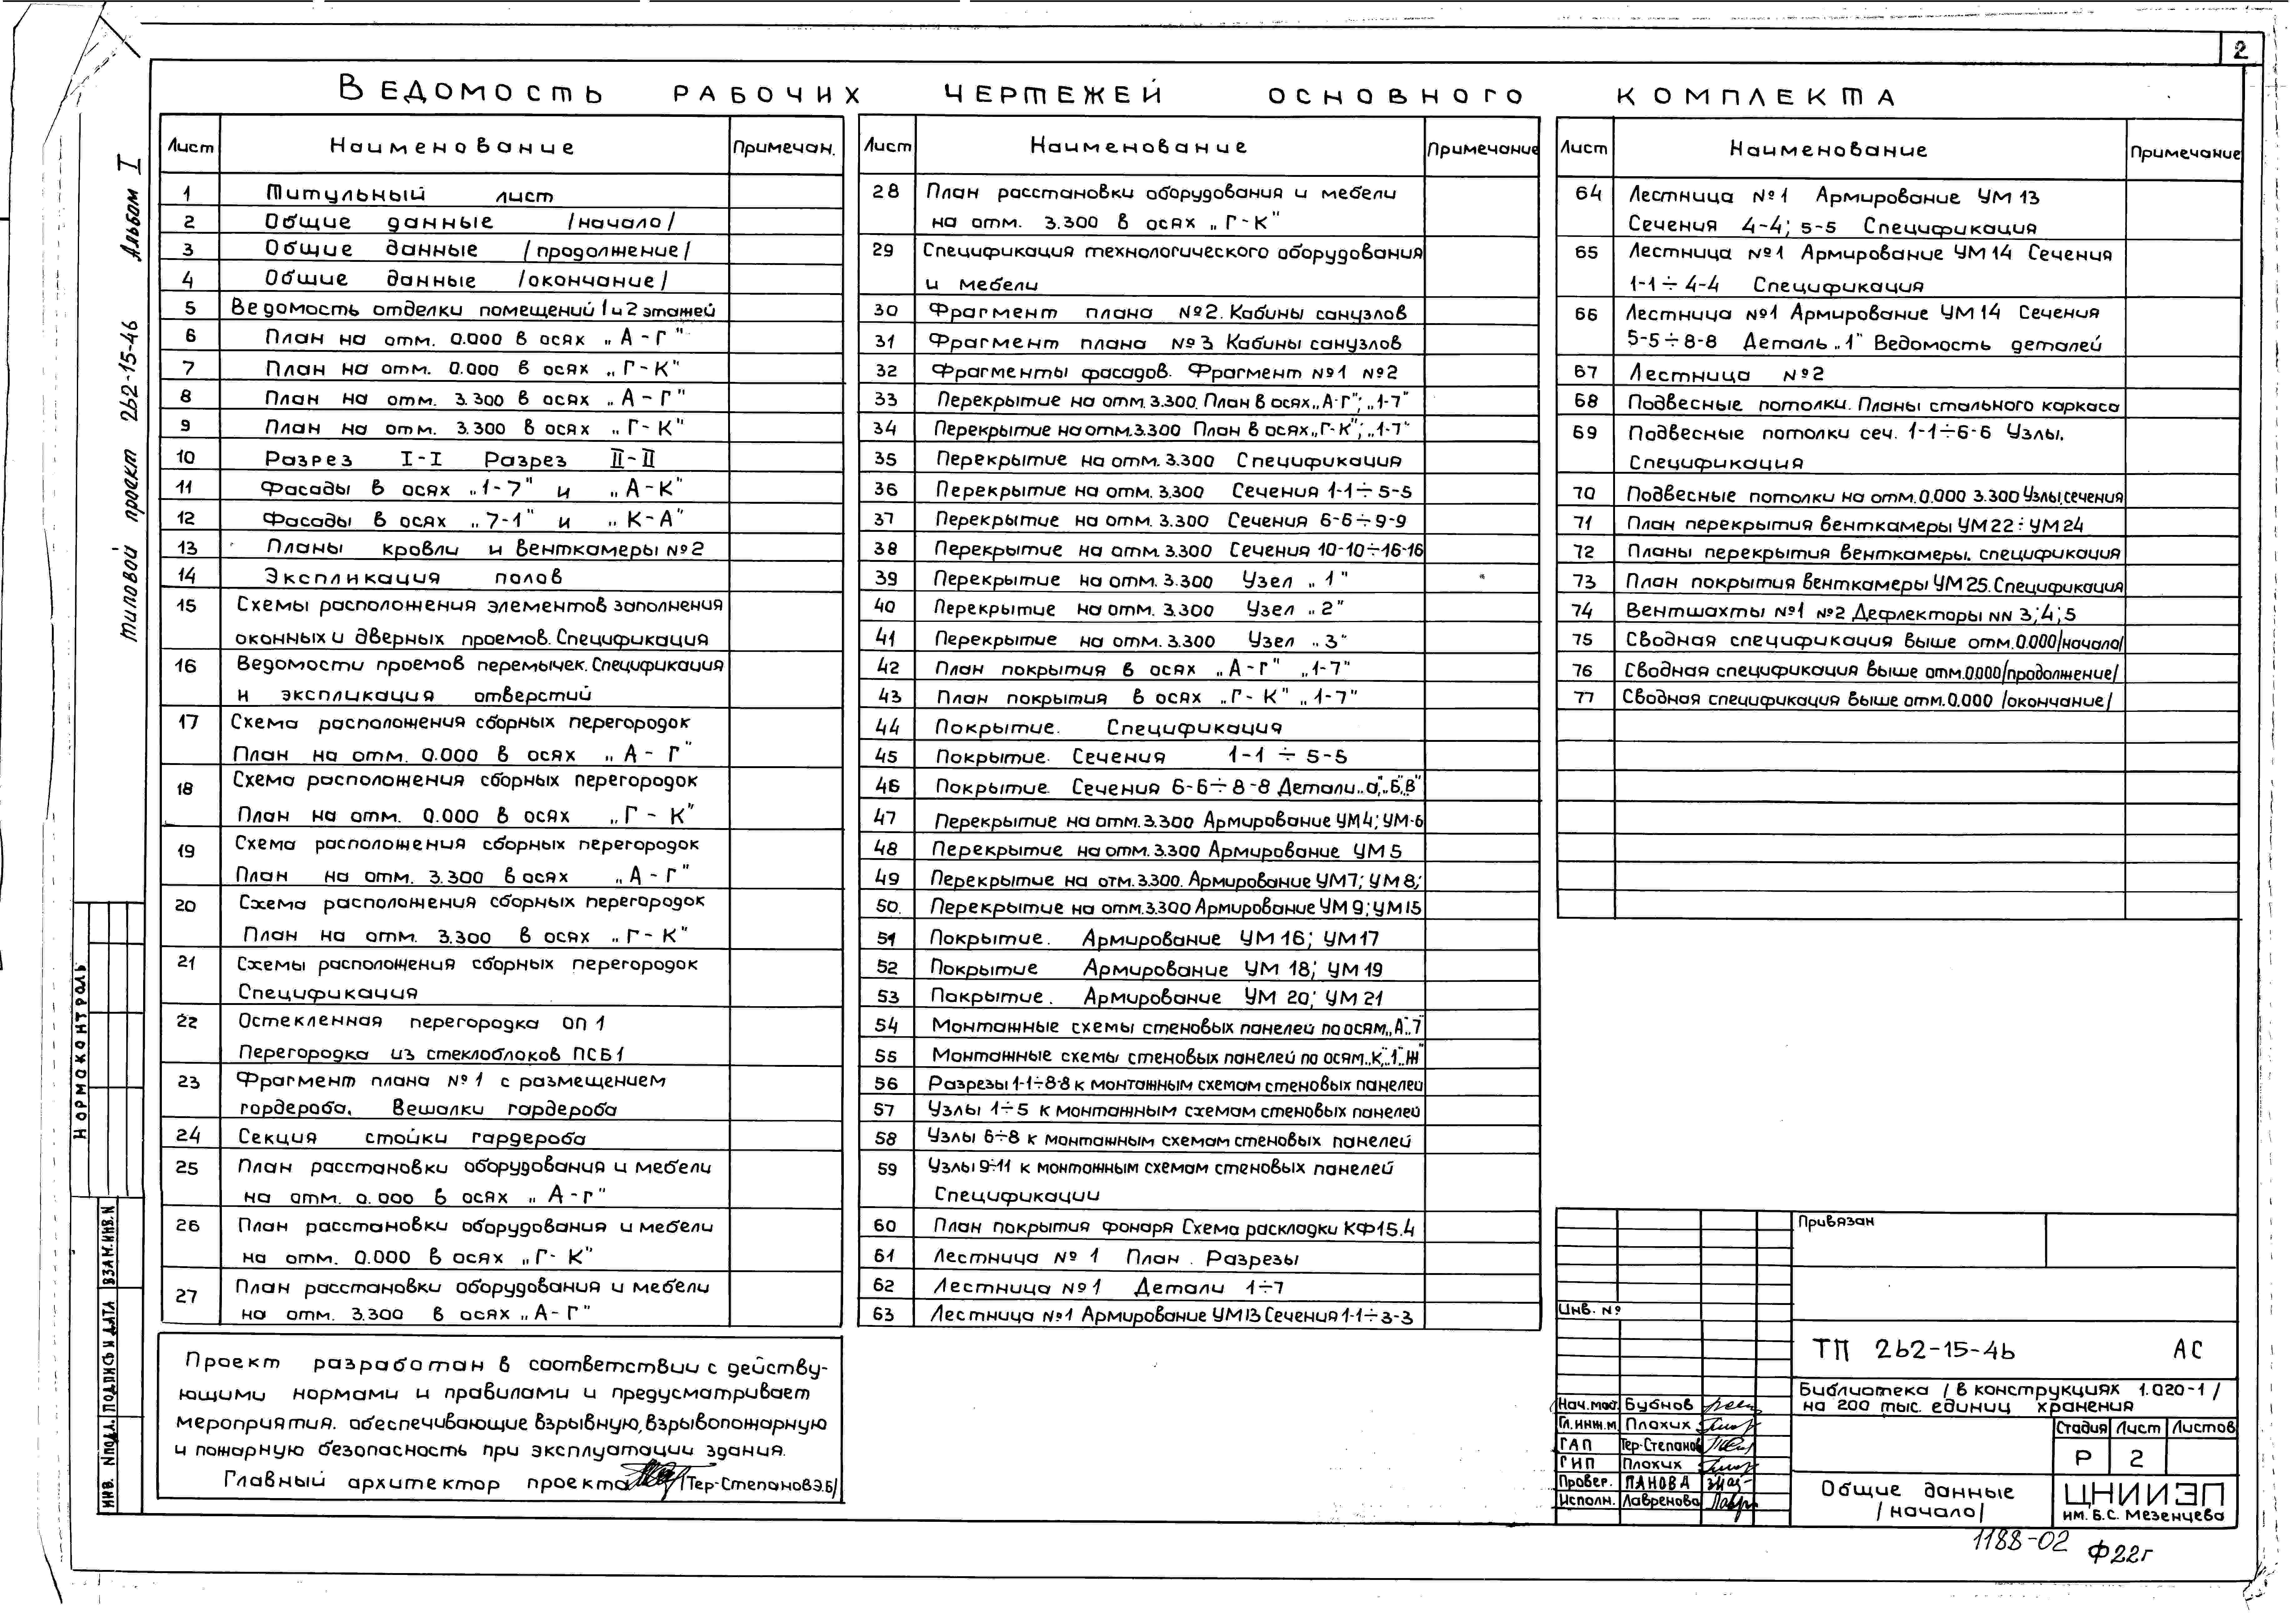 2
Ведомость рабочих чертежей основного комплекта
Альбом I
типовой проект 262-15-46
Лист Наименование Примечан.
1 Титульный лист
2 Общие данные /начало/
3 Общие данные /продолжение/
4 Общие данные /окончание/
5 Ведомость отделки помещений 1 и 2 этажей
6 План на отм. 0.000 в осях „А-Г"
7 План на отм. 0.000 в осях „Г-К"
8 План на отм. 3.300 в осях „А-Г"
9 План на отм. 3.300 в осях „Г-К"
10 Разрез I-I Разрез II-II
11 Фасады в осях „1-7" и „А-К"
12 Фасады в осях „7-1" и „К-А"
13 Планы кровли и венткамеры №2
14 Экспликация полов
15 Схемы расположения элементов заполнения
оконных и дверных проемов. Спецификация
16 Ведомости проемов перемычек. Спецификация
и экспликация отверстий
17 Схема расположения сборных перегородок
План на отм. 0.000 в осях „А-Г"
18 Схема расположения сборных перегородок
План на отм. 0.000 в осях „Г-К"
19 Схема расположения сборных перегородок
План на отм. 3.300 в осях „А-Г"
20 Схема расположения сборных перегородок
План на отм. 3.300 в осях „Г-К"
21 Схемы расположения сборных перегородок
Спецификация
22 Остекленная перегородка ОП 1
Перегородка из стеклоблоков ПСБ1
23 Фрагмент плана №1 с размещением
гордероба. Вешалки гардероба
24 Секция стойки гардероба
25 План расстановки оборудования и мебели
на отм. 0.000 в осях „А-Г"
26 План расстановки оборудования и мебели
на отм. 0.000 в осях „Г-К"
27 План расстановки оборудования и мебели
на отм. 3.300 в осях „А-Г"
Лист Наименование Примечание
28 План расстановки оборудования и мебели
на отм. 3.300 в осях „Г-К"
29 Спецификация технологического оборудования
и мебели
30 Фрагмент плана №2. Кабины санузлов
31 Фрагмент плана №3 Кабины санузлов
32 Фрагменты фасадов. Фрагмент №1 №2
33 Перекрытие на отм. 3.300. План в осях „А-Г"; „1-7"
34 Перекрытие на отм. 3.300 План в осях „Г-К"; „1-7"
35 Перекрытие на отм. 3.300 Спецификация
36 Перекрытие на отм. 3.300 Сечения 1-1÷5-5
37 Перекрытие на отм. 3.300 Сечения 6-6÷9-9
38 Перекрытие на отм. 3.300 Сечения 10-10÷16-16
39 Перекрытие на отм. 3.300 Узел „1"
40 Перекрытие на отм. 3.300 Узел „2"
41 Перекрытие на отм. 3.300 Узел „3"
42 План покрытия в осях „А-Г" „1-7"
43 План покрытия в осях „Г-К" „1-7"
44 Покрытие. Спецификация
45 Покрытие. Сечения 1-1÷5-5
46 Покрытие. Сечения 6-6÷8-8 Детали „а", „Б", „В"
47 Перекрытие на отм. 3.300 Армирование УМ4; УМ-6
48 Перекрытие на отм. 3.300 Армирование УМ5
49 Перекрытие на отм. 3.300. Армирование УМ7; УМ8;
50. Перекрытие на отм. 3.300 Армирование УМ9; УМ15
51 Покрытие. Армирование УМ16; УМ17
52 Покрытие Армирование УМ 18; УМ 19
53 Покрытие. Армирование УМ 20; УМ 21
54 Монтажные схемы стеновых панелей по осям „А", „7"
55 Монтажные схемы стеновых панелей по осям „К", „1", „Ж"
56 Разрезы 1-1÷8-8 к монтажным схемам стеновых панелей
57 Узлы 1÷5 к монтажным схемам стеновых панелей
58 Узлы 6÷8 к монтажным схемам стеновых панелей
59 Узлы 9÷11 к монтажным схемам стеновых панелей
Спецификации
60 План покрытия фонаря Схема раскладки КФ15.4
61 Лестница № 1 План. Разрезы
62 Лестница №1 Детали 1÷7
63 Лестница №1 Армирование УМ13 Сечения 1-1÷3-3
Лист Наименование Примечание
64 Лестница №1 Армирование УМ 13
Сечения 4-4; 5-5 Спецификация
65 Лестница №1 Армирование УМ14 Сечения
1-1÷4-4 Спецификация
66 Лестница №1 Армирование УМ14 Сечения
5-5÷8-8 Деталь „1" Ведомость деталей
67 Лестница №2
68 Подвесные потолки. Планы стального каркаса
69 Подвесные потолки сеч. 1-1÷6-6 Узлы.
Спецификация
70 Подвесные потолки на отм. 0.000 3.300 Узлы, сечения
71 План перекрытия венткамеры УМ22÷УМ24
72 Планы перекрытия венткамеры. спецификация
73 План покрытия венткамеры УМ25. Спецификация
74 Вентшахты №1 №2 Дефлекторы NN 3; 4; 5
75 Сводная спецификация выше отм. 0.000 /начало/
76 Сводная спецификация выше отм. 0.000 /продолжение/
77 Сводная спецификация выше отм. 0.000 /окончание/
Проект разработан в соответствии с действу-
ющими нормами и правилами и предусматривает
мероприятия. обеспечивающие взрывную, взрывопожарную
и пожарную безопасность при эксплуатации здания.
Главный архитектор проекта /Тер-Степанов Э.Б/
Нормоконтроль
Взам. инв. N
Подпись и дата
Инв. N подл.
Привязан
Инв. №
ТП 262-15-46 АС
Библиотека /в конструкциях 1.020-1/
на 200 тыс. единиц хранения
Нач. маст. Бубнов
Гл. инж. м Плохих
ГАП Тер-Степанов
ГИП Плохих
Провер. Панова
Исполн. Лавренова
Стадия Лист Листов
Р 2
Общие данные
/начало/
ЦНИИЭП
им. Б.С. Мезенцева
1188-02
Ф22г